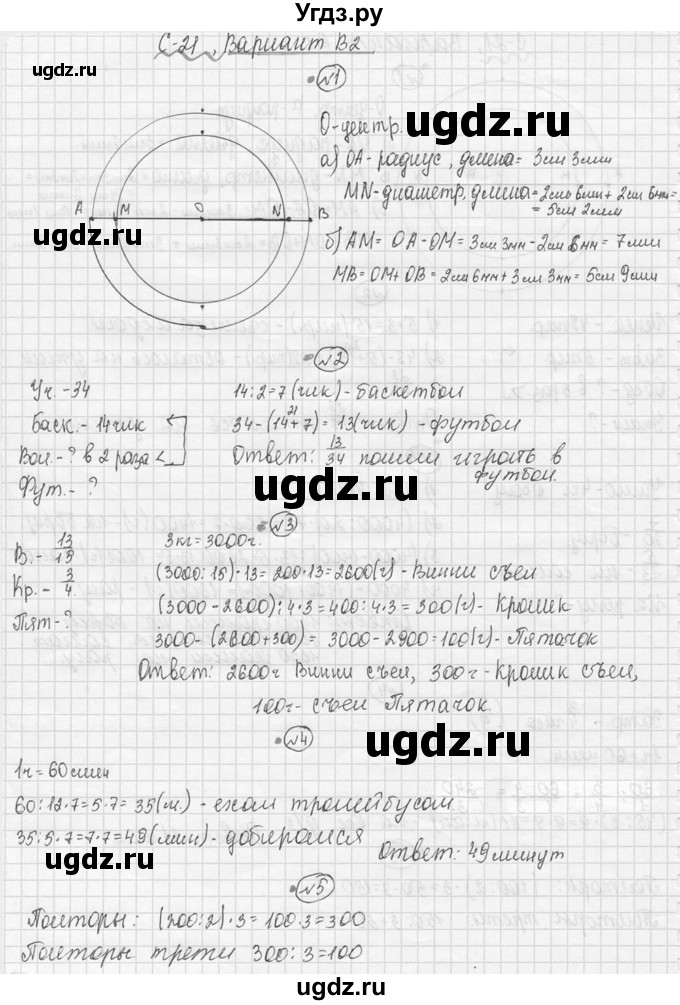 Угдз.ру
С-21, Вариант В2
№1
О-центр.
а) ОА - радиус, длина = 3см 3мм
MN - диаметр, длина = 2см 6мм + 2см 6мм =
= 5см 2мм
A M O N B
б) AM = OA - OM = 3см 3мм - 2см 6мм = 7мм
MB = OM + OB = 2см 6мм + 3см 3мм = 5см 9мм
№2
Уч. - 34
Баск. - 14чик
Вол. - ? в 2 раза <
Фут. - ?
14:2=7(чик) - баскетбол
21
34-(14+7)=13(чик) - футбол
Ответ: 13/34 пошли играть в
футбол.
№3
В. - 13/15
Кр. - 3/4.
Пят - ?
3кг=3000г.
(3000:15)·13=200·13=2600(г) - Винни съел
(3000-2600):4·3=400:4·3=300(г) - Крошик
3000-(2600+300)=3000-2900=100(г) - Пятачок
Ответ: 2600г Винни съел, 300г - Крошик съел,
100г - съел Пятачок.
№4
1ч=60мин
60:12·7=5·7=35(м.) - ехал тролейбусом
35:5·7=7·7=49(мин) - добирался
Ответ: 49минут
№5
Полторы: (200:2)·3=100·3=300
Полторы трети 300:3=100
ugdz.ru
ugdz.ru
ugdz.ru
ugdz.ru
ugdz.ru
ugdz.ru
ugdz.ru
ugdz.ru
ugdz.ru
ugdz.ru
ugdz.ru
Угдз.ру